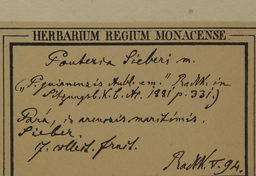 HERBARIUM REGIUM MONACENSE.
Pouteria Sieberi m.
("P. guianensis Aubl. em." Radlk. in
Sitzungsb. K. b. At. 1881 p. 331.)
Pará, in arenosis maritimis.
Sieber.
Radlk. V. 94.